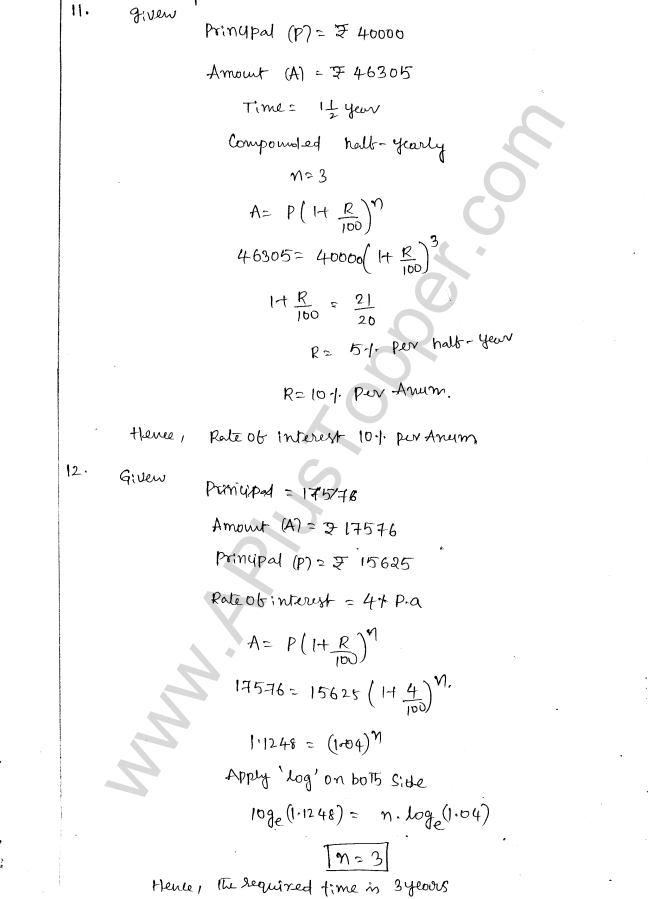 11. Given
Principal (P) = ₹ 40000
Amount (A) = ₹ 46305
Time = 1 1/2 year
Compounded half-yearly
n=3
A= P(1+ R/100)^n
46305= 40000(1+ R/100)^3
1+ R/100 = 21/20
R= 5% per half-year
R=10% Per Anum.
Hence, Rate of interest 10% per Anum
12. Given
Principal = 17576
Amount (A) = ₹ 17576
Principal (P) = ₹ 15625
Rate of interest = 4% P.a
A= P(1+ R/100)^n
17576= 15625 (1+ 4/100)^n.
1.1248 = (1.04)^n
Apply 'log' on both side
log_e(1.1248) = n. log_e(1.04)
n=3
Hence, The required time is 3 years
www.APlusTopper.com